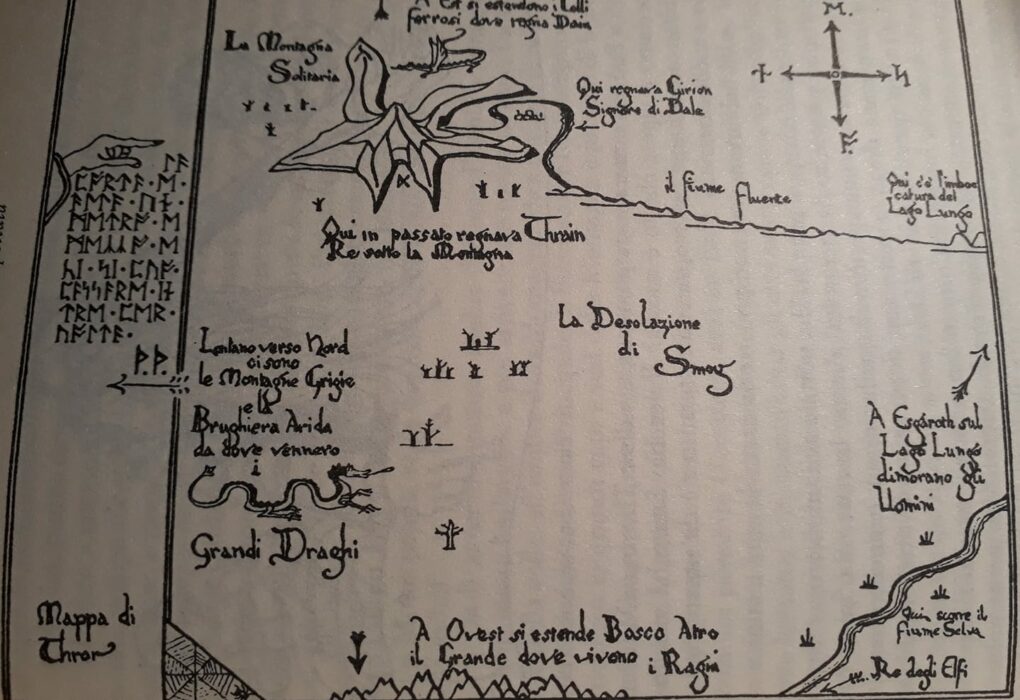 A Est si estendono i Colli
ferrosi dove regna Dain
La Montagna
Solitaria
Qui regnava Girion
Signore di Dale
ᛚᚪ
ᛈᚩᚱᛏᚪ · ᛖ ·
ᚪᛚᛏᚪ · ᚢᚾ ·
ᛗᛖᛏᚱᚩ · ᛖ
ᛗᛖᛣᛣᚩ · ᛖ
ᚳᛁ · ᛋᛁ · ᛈᚢᚩ ·
ᛈᚪᛋᛋᚪᚱᛖ · ᛁᚾ
ᛏᚱᛖ · ᛈᛖᚱ ·
ᚢᚩᛚᛏᚪ ·
ᚦ.ᚦ.
il fiume fluente
Qui c'è l'imboc
catura del
Lago Lungo
Qui in passato regnava Thrain
Re sotto la Montagna
La Desolazione
di Smog
Lontano verso Nord
ci sono
le Montagne Grigie
e la
Brughiera Arida
da dove vennero
i
Grandi Draghi
A Esgaroth sul
Lago Lungo
dimorano gli
Uomini
Mappa di
Thror
A Ovest si estende Bosco Atro
il Grande dove vivono i Ragni
Qui scorre il
fiume Selva
Re degli Elfi